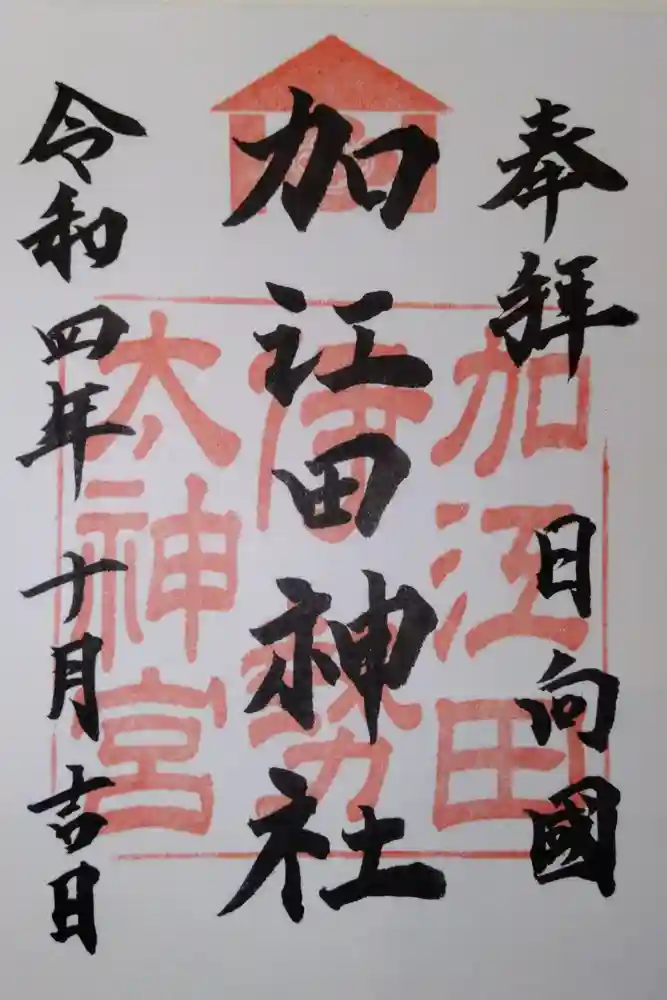 奉拝 日向國
加江田神社
令和四年十月吉日
加江田
伊勢
大神宮